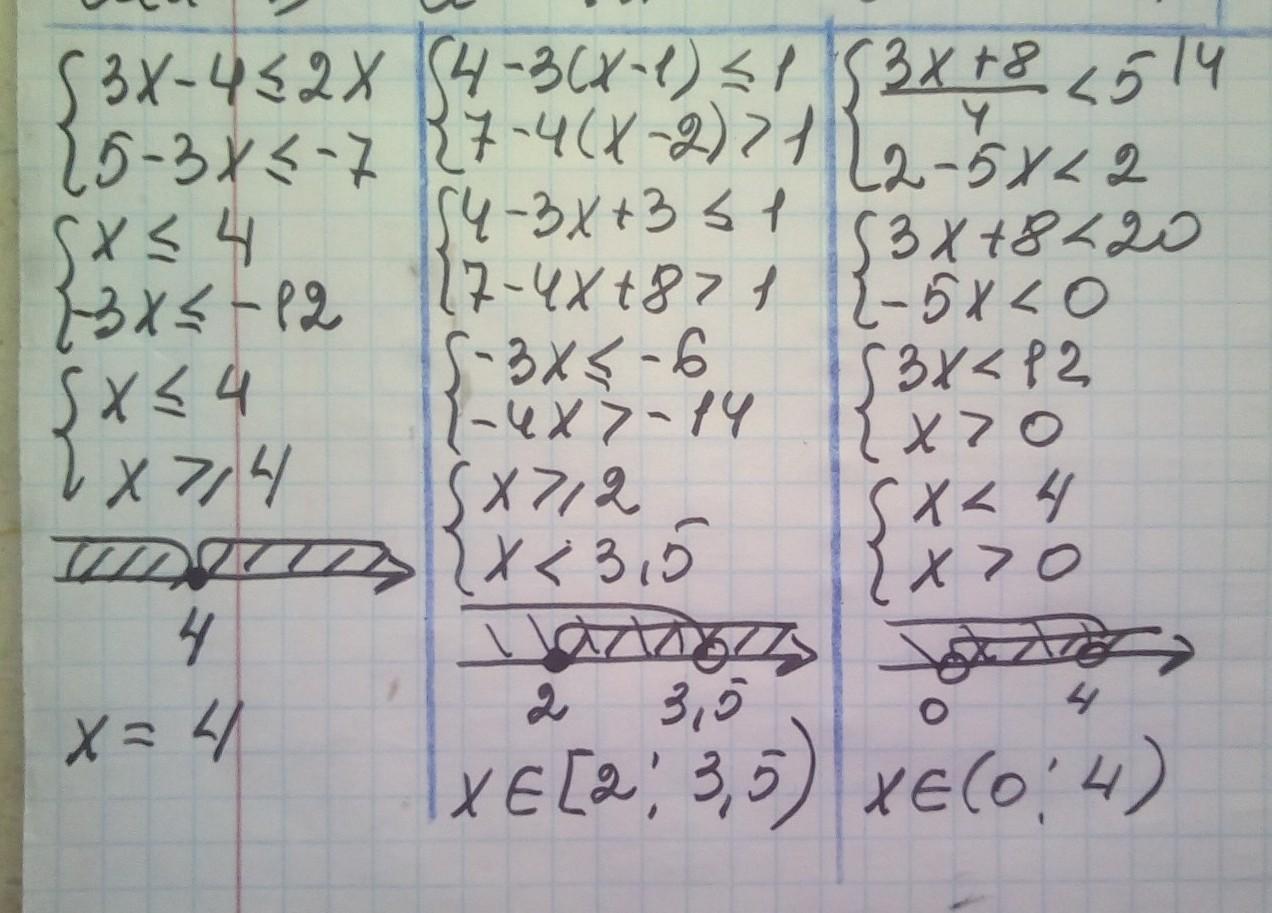 3x-4≤2x
5-3x≤-7
x≤4
-3x≤-12
x≤4
x≥4
4
x=4
4-3(x-1)≤1
7-4(x-2)>1
4-3x+3≤1
7-4x+8>1
-3x≤-6
-4x>-14
x≥2
x<3,5
2 3,5
x∈[2; 3,5)
(3x+8)/4<5 |4
2-5x<2
3x+8<20
-5x<0
3x<12
x>0
x<4
x>0
0 4
x∈(0; 4)